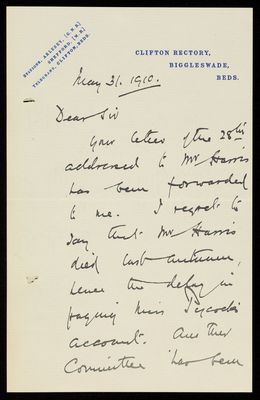 STATIONS, ARLESEY, (G.N.R)
SHEFFORD, (M.R)
TELEGRAPH, CLIFTON, BEDS.
CLIFTON RECTORY,
BIGGLESWADE,
BEDS.
May 31. 1910.
Dear Sir
Your letter of the 28th
addressed to Mr Harris
has been forwarded
to me. I regret to
say that Mr Harris
died last autumn,
hence the delay in
paying Miss Pycock's
account. Another
Committee has been